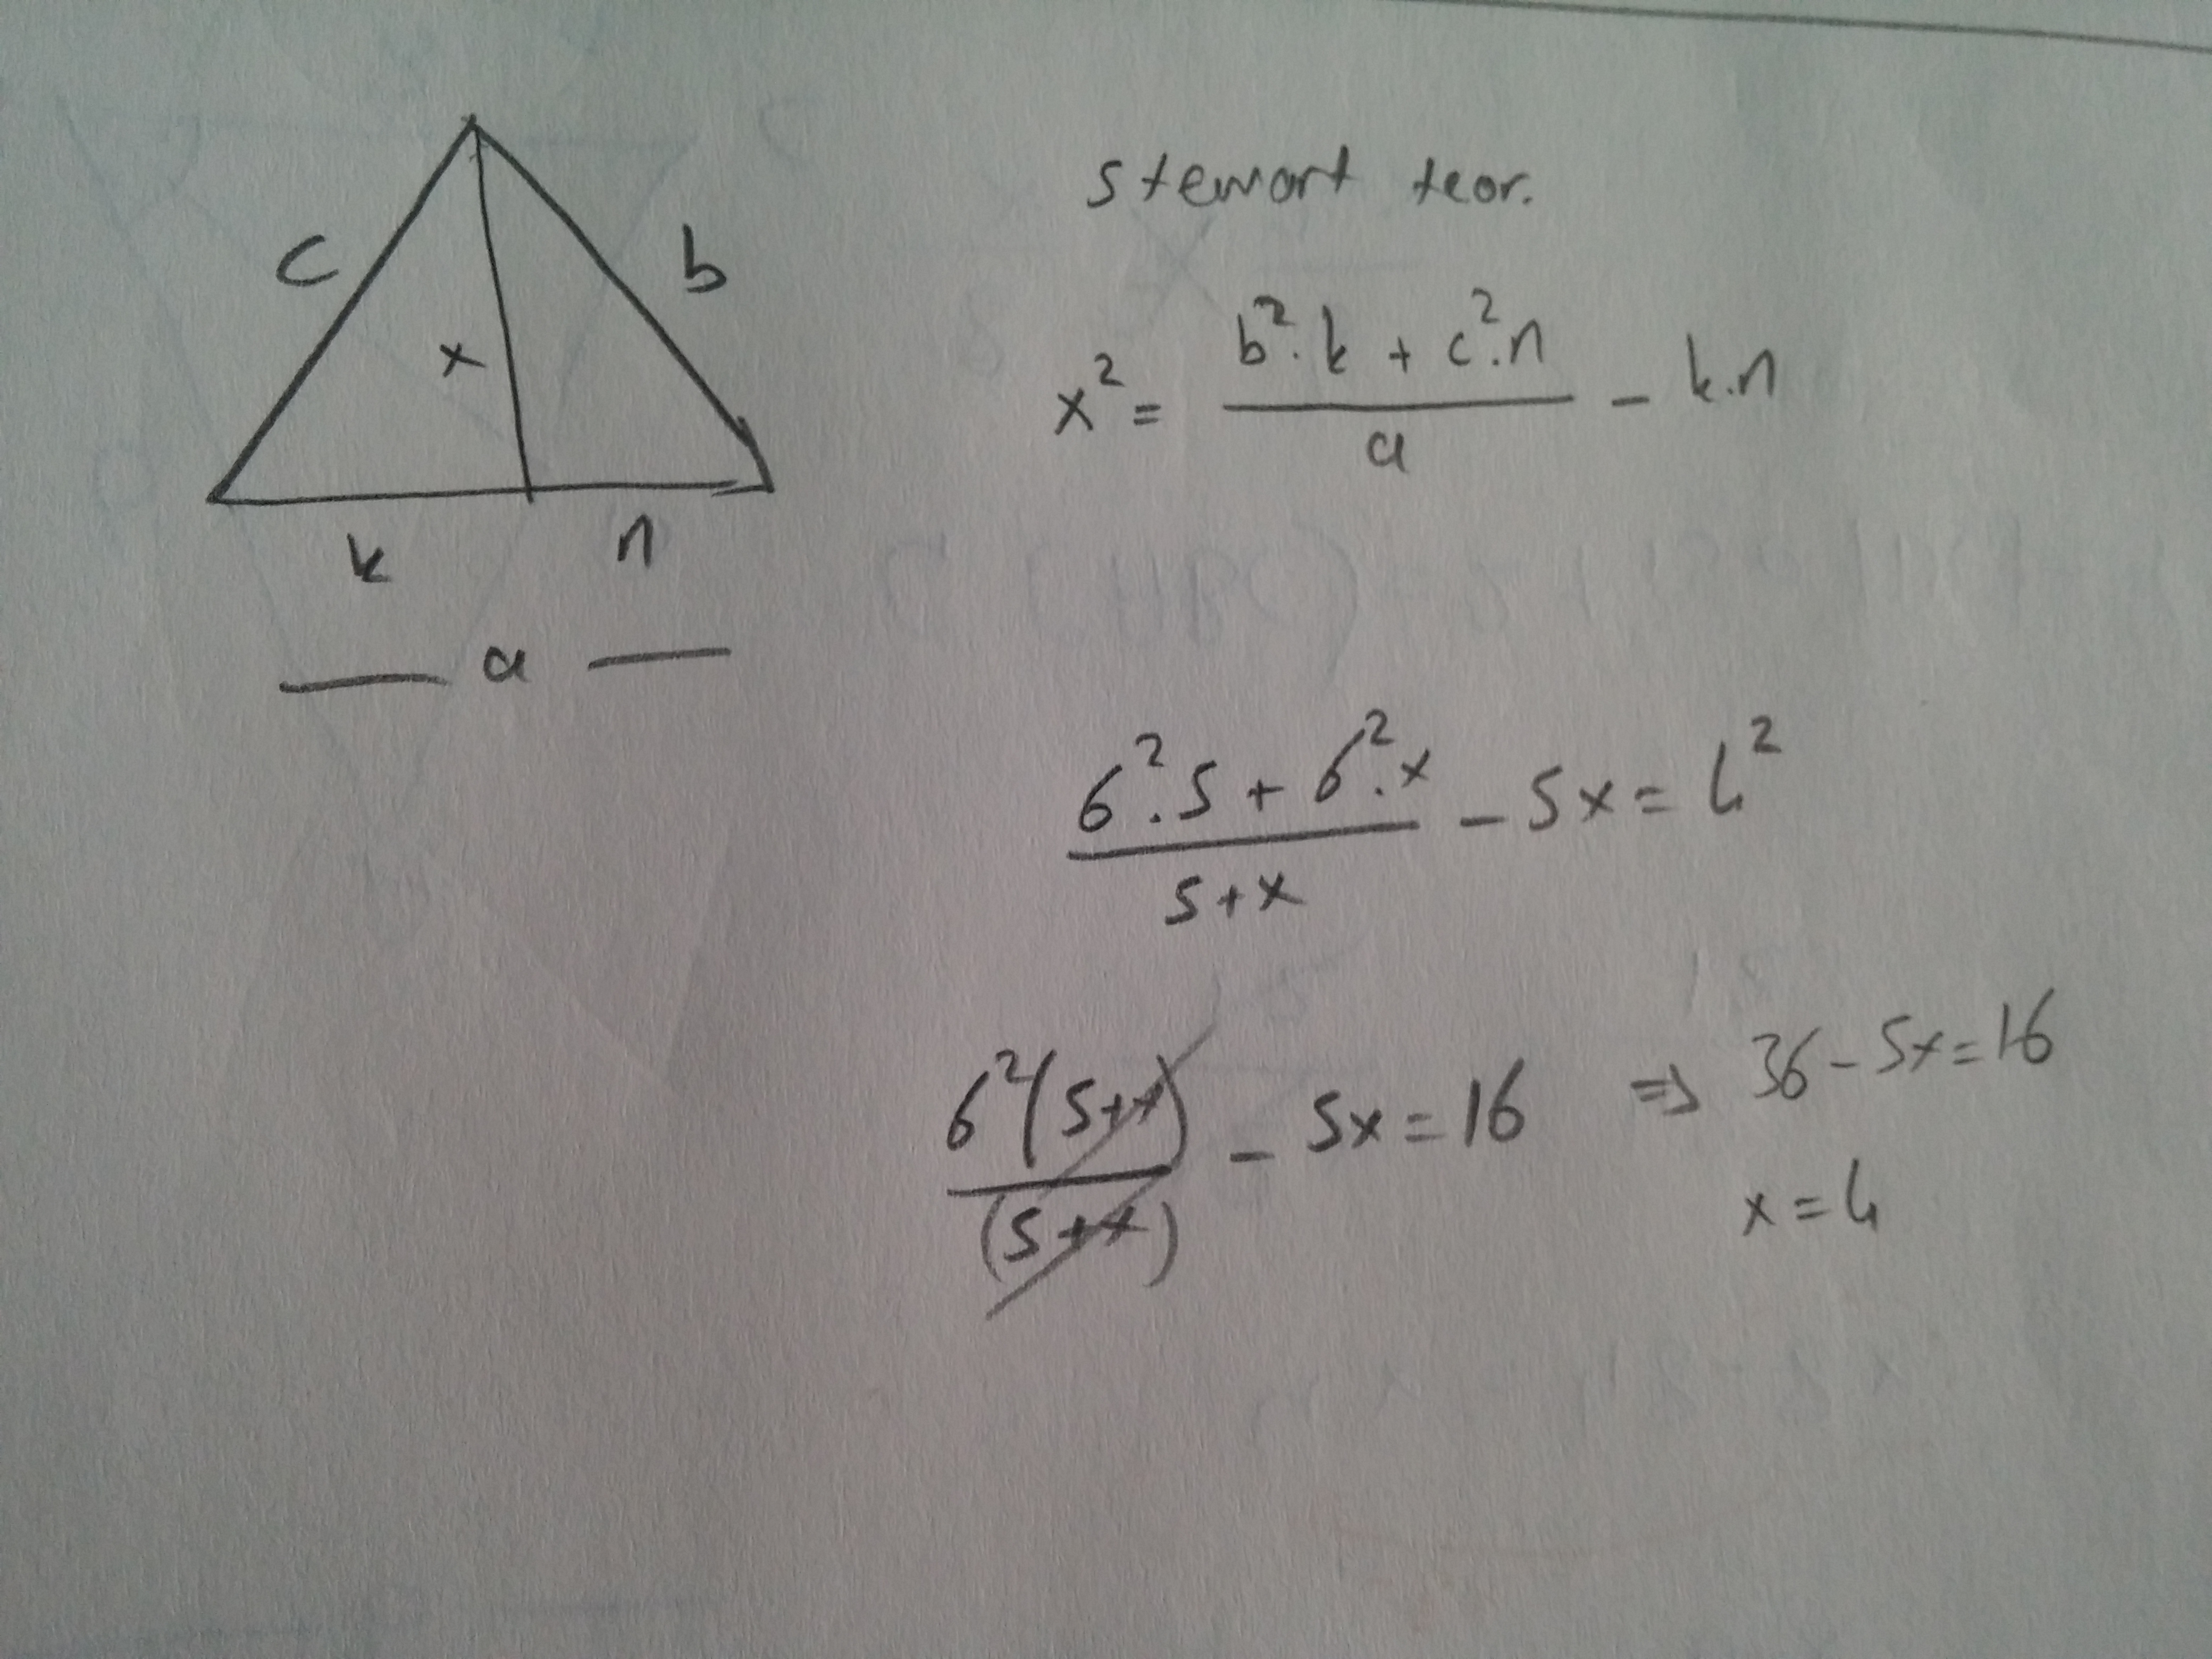 c
b
x
k
n
a
Stewart teor.
x² = (b².k + c².n) / a - k.n
(6².5 + 6².x) / (5+x) - 5x = 4²
6²(5+x) / (5+x) - 5x = 16 ⇒ 36 - 5x = 16
x = 4